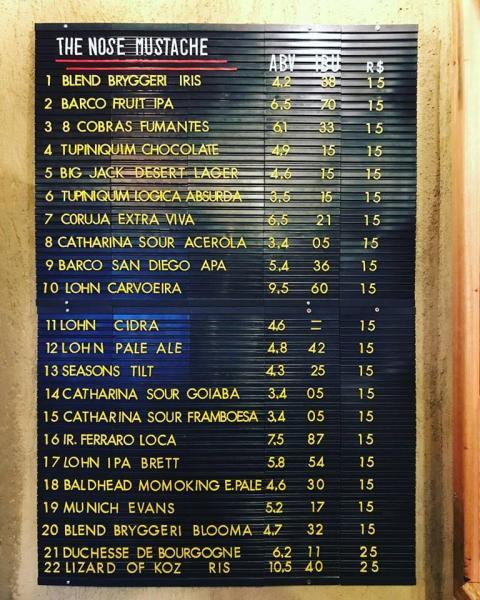 THE NOSE MUSTACHE ABV IBU R$
1 BLEND BRYGGERI IRIS 4,2 38 15
2 BARCO FRUIT IPA 6,5 70 15
3 8 COBRAS FUMANTES 6,1 33 15
4 TUPINIQUIM CHOCOLATE 4,9 15 15
5 BIG JACK DESERT LAGER 4,6 15 15
6 TUPINIQUIM LOGICA ABSURDA 3,5 15 15
7 CORUJA EXTRA VIVA 6,5 21 15
8 CATHARINA SOUR ACEROLA 3,4 05 15
9 BARCO SAN DIEGO APA 5,4 36 15
10 LOHN CARVOEIRA 9,5 60 15
11 LOHN CIDRA 4,6 — 15
12 LOHN PALE ALE 4,8 42 15
13 SEASONS TILT 4,3 25 15
14 CATHARINA SOUR GOIABA 3,4 05 15
15 CATHARINA SOUR FRAMBOESA 3,4 05 15
16 IR. FERRARO LOCA 7,5 87 15
17 LOHN IPA BRETT 5,8 54 15
18 BALDHEAD MOMOKING E.PALE 4,6 30 15
19 MUNICH EVANS 5,2 17 15
20 BLEND BRYGGERI BLOOMA 4,7 32 15
21 DUCHESSE DE BOURGOGNE 6,2 11 25
22 LIZARD OF KOZ RIS 10,5 40 25